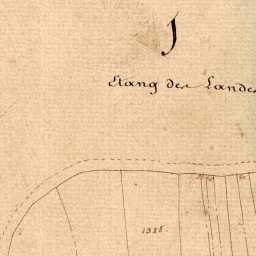 J
Etang des Landes
1325